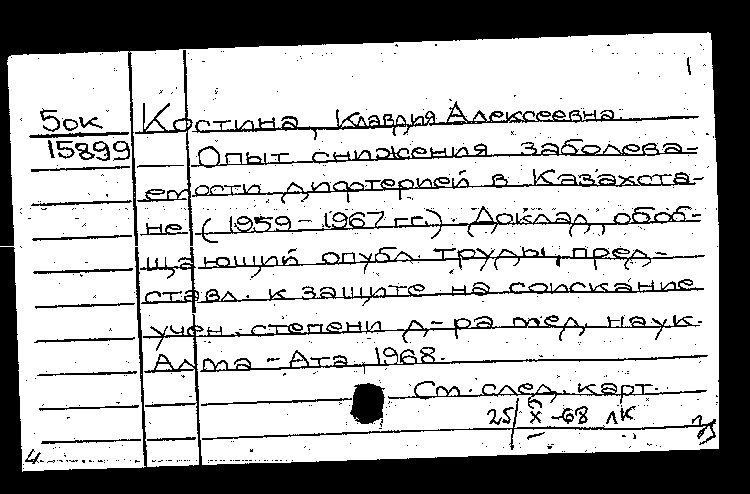 1
5ок Костина, Клавдия Алексеевна.
15899 Опыт снижения заболева=
емости дифтерией в Казахста-
не (1959-1967 гг.). Доклад, обоб-
щающий опубл. труды, пред-
ставл. к защите на соискание
учен. степени д-ра мед. наук.
Алма-Ата, 1968.
См. след. карт.
25/X-68 ЛК
4